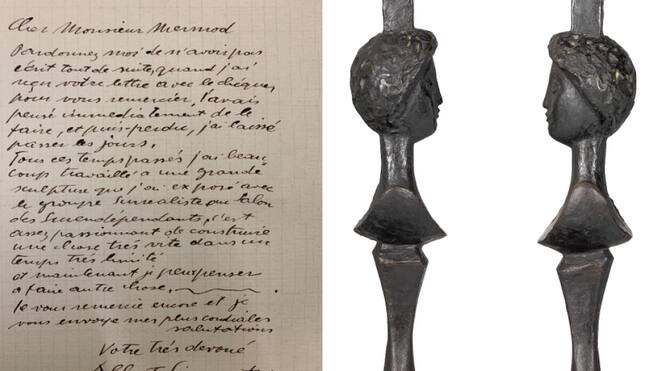 Cher Monsieur Mermod
Pardonnez moi de n'avoir pas
écrit tout de suite, quand j'ai
reçu votre lettre avec le chèque,
pour vous remercier, j'avais
pensé immédiatement de le
faire, et puis perdre, j'ai laissé
passer les jours.
Tous ces temps passés j'ai beau,
coup travaillé a une grande
sculpture que j'ai exposé avec
le groupe Surréaliste au Salon
des Surendépendants, c'est
assez passionnant de construire
une chose très vite dans un
temps très limité
et maintenant je peux penser
a faire autre chose.
Je vous remercie encore et je
vous envoye mes plus cordiales
salutations
Votre très dévoué